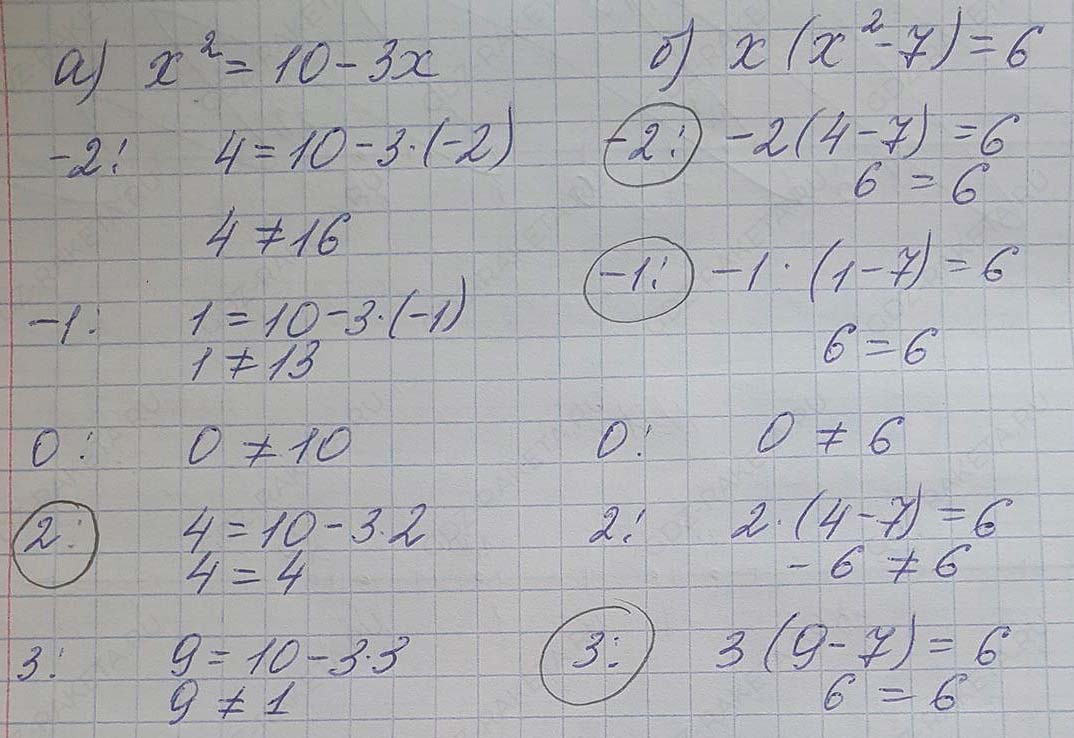 а) x² = 10 - 3x
-2: 4 = 10 - 3·(-2)
4 ≠ 16
-1: 1 = 10 - 3·(-1)
1 ≠ 13
0: 0 ≠ 10
2: 4 = 10 - 3·2
4 = 4
3: 9 = 10 - 3·3
9 ≠ 1
б) x(x² - 7) = 6
-2: -2(4 - 7) = 6
6 = 6
-1: -1·(1 - 7) = 6
6 = 6
0: 0 ≠ 6
2: 2·(4 - 7) = 6
-6 ≠ 6
3: 3(9 - 7) = 6
6 = 6